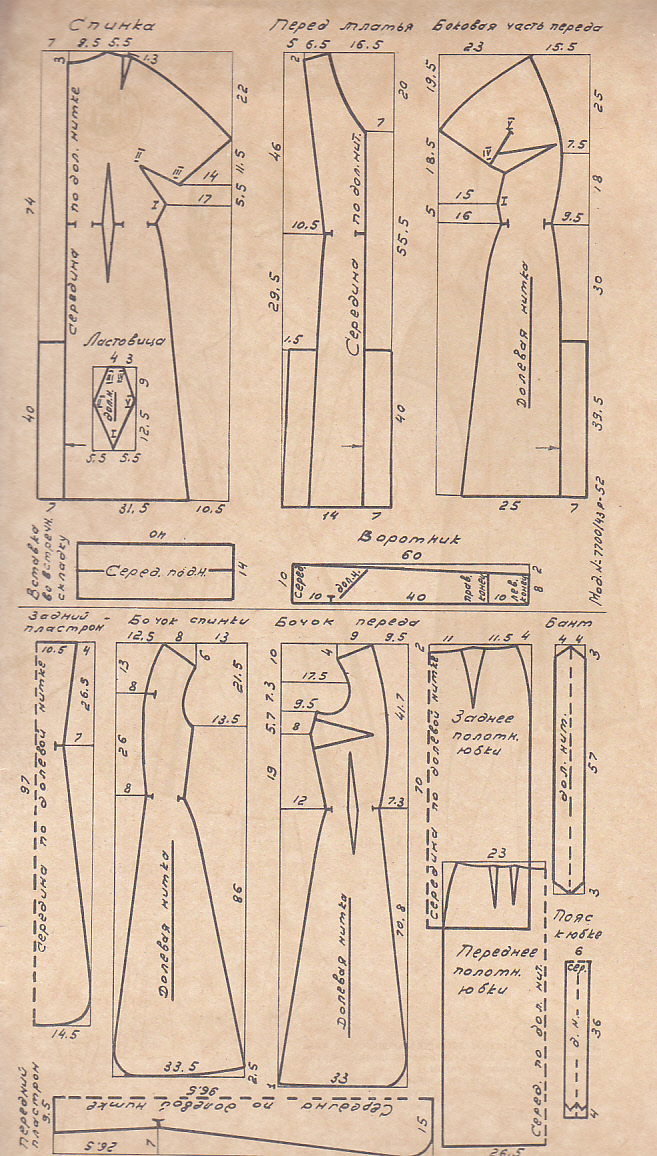 Спинка
7 9.5 5.5
3
1.3
22
11.5
5.5
14
17
III
III
I
74
40
середина по дол. нитке
Ластовица
4 3
9
12.5
5.5 5.5
дол.н.
III III
I
7 31.5 10.5
Перед платья
5 6.5 16.5
2
20
7
46
10.5
55.5
29.5
1.5
40
Середина по дол. нит.
14 7
Боковая часть переда
23 15.5
19.5
25
18.5
7.5
V
IV
15
I
5
16
18
9.5
30
39.5
Долевая нитка
25 7
Мод. № 7700/43Р-52
Вставка
во встречн.
складку
он
Серед. по д.н.
14
Воротник
60
10
серед
10
дол.н.
40
прав.
конец
10
лев.
конец
2
8
Задний
пластрон
10.5 4
26.5
7
97
середина по долевой нитке
14.5
Бочок спинки
12.5 8 13
6
13
8
21.5
13.5
26
8
86
Долевая нитка
33.5
2.5
Бочок переда
9 9.5
10
4
17.5
7.3
9.5
5.7
8
41.7
19
12
7.3
70.8
Долевая нитка
1
33
2
11 11.5 4
70
середина по долевой нитке
Заднее
полотн.
юбки
23
Переднее
полотн.
юбки
Серед. по дол. нит.
26.5
Бант
4 4
3
дол. нит.
57
3
Пояс
к юбке
6
сер.
д. н.
36
4
Передний
пластрон
9.5
96.5
Середина по долевой нитке
15
26.5
7